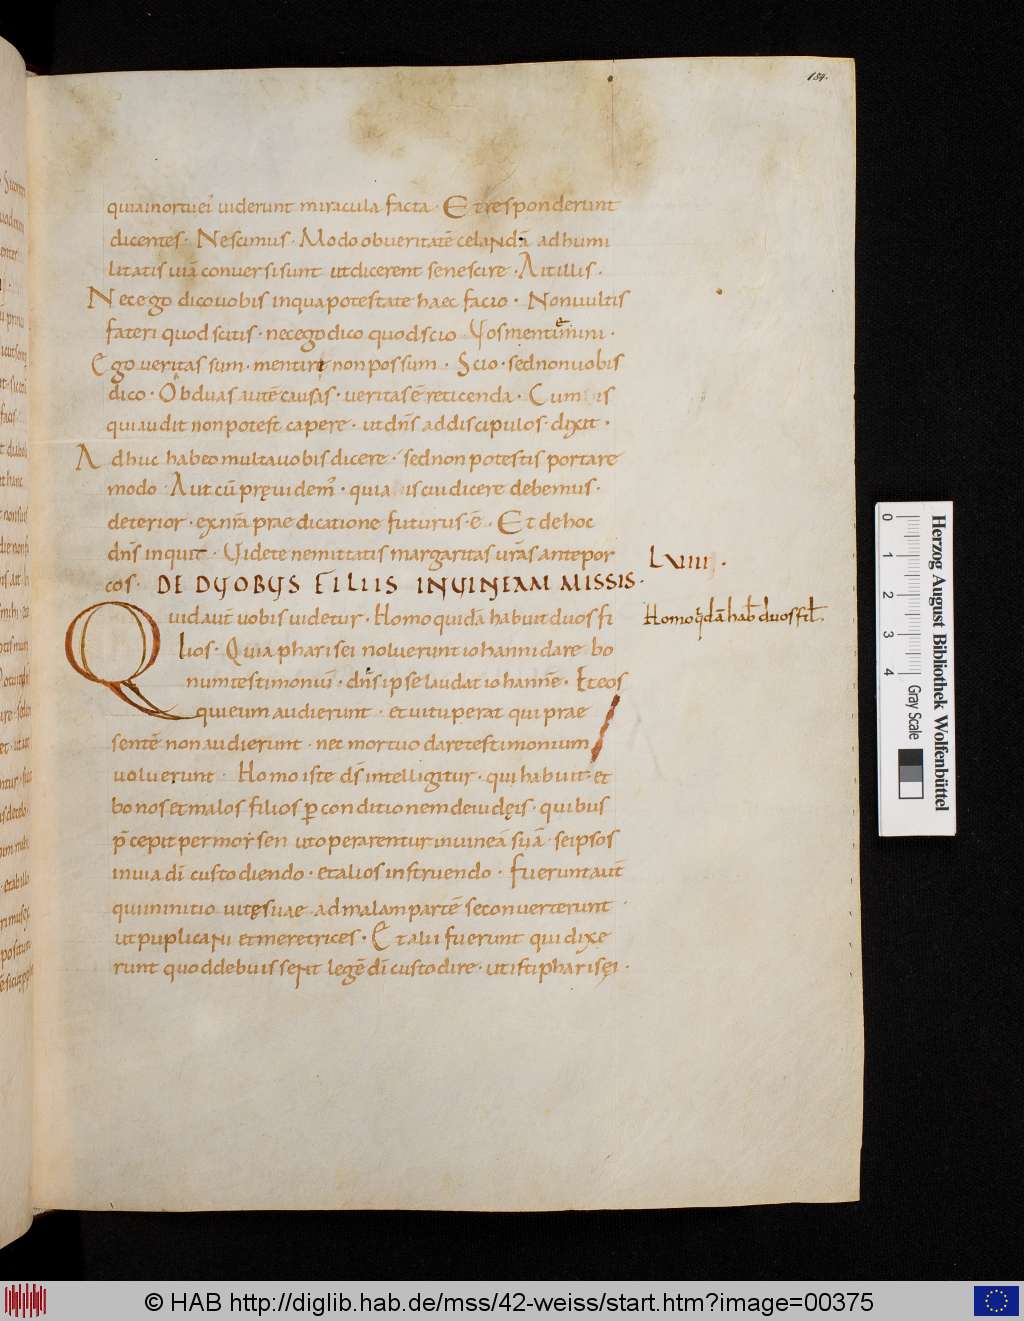 184.
quia mortuei uiderunt miracula facta · Et responderunt
dicentes · Nescimus · Modo ob ueritatē celandā ad humi
litatis uiā conuersi sunt ut dicerent se nescire · Ait illis ·
Nec ego dico uobis in qua potestate haec facio · Non uultis
fateri quod scitis · nec ego dico quod scio Vos mentimini ·
Ego ueritas sum · mentiri non possum · Scio · sed non uobis
dico · Ob duas autē causas · ueritas ē reticenda · Cum is
qui audit non potest capere · ut dn̄s ad discipulos · dixit ·
Ad huc habeo multa uobis dicere · sed non potestis portare
modo · Aut cū pręuidem᾽ · quia is cui dicere debemus ·
deterior · ex nr̄a praedicatione futurus · ē · Et de hoc
dn̄s inquit · Videte ne mittatis margaritas ur̄as ante por
cos · DE DVOBVS FILIIS IN VINEAM MISSIS ·
LXIIII ·
Quid aut̄ uobis uidetur · Homo quidā habuit duos fi
Homo qdā hab̄ duos fil̄ ·
lios · Quia pharisei noluerunt iohanni dare bo
num testimoniū · dn̄s ipse laudat iohannē · Et eos
qui eum audierunt · et uituperat qui prae
sentē non audierunt · nec mortuo dare testimonium
uoluerunt · Homo iste dr̄ intelligitur · qui habuit et
bonos et malos filios p̱ conditionem deiudęis · quibus
p̄cepit per morsen ut operarentur in uineā suā · se ipsos
in uia dī custodiendo · et alios instruendo · Fuerunt aut̄
qui in initio uitę suae · ad malam partē se conuerterunt ·
ut puplicani et meretrices · Et alii fuerunt qui dixe
runt quod debuissent legē dī custodire · ut isti pharisęi ·
Herzog August Bibliothek Wolfenbüttel
Gray Scale
0 1 2 3 4
© HAB http://diglib.hab.de/mss/42-weiss/start.htm?image=00375